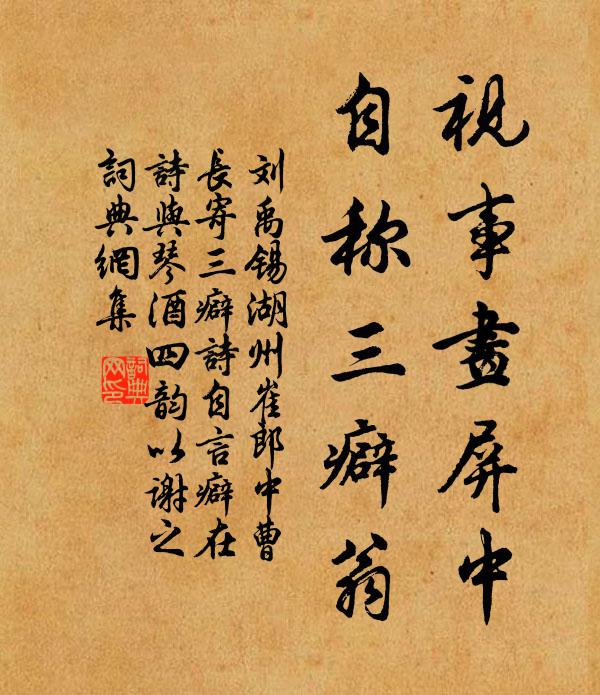 視事畫屏中
自称三癖翁
刘禹锡湖州崔郎中曹
長寄三癖詩自言癖在
詩與琴酒四韵以谢之
詞典網集
詞典
网印